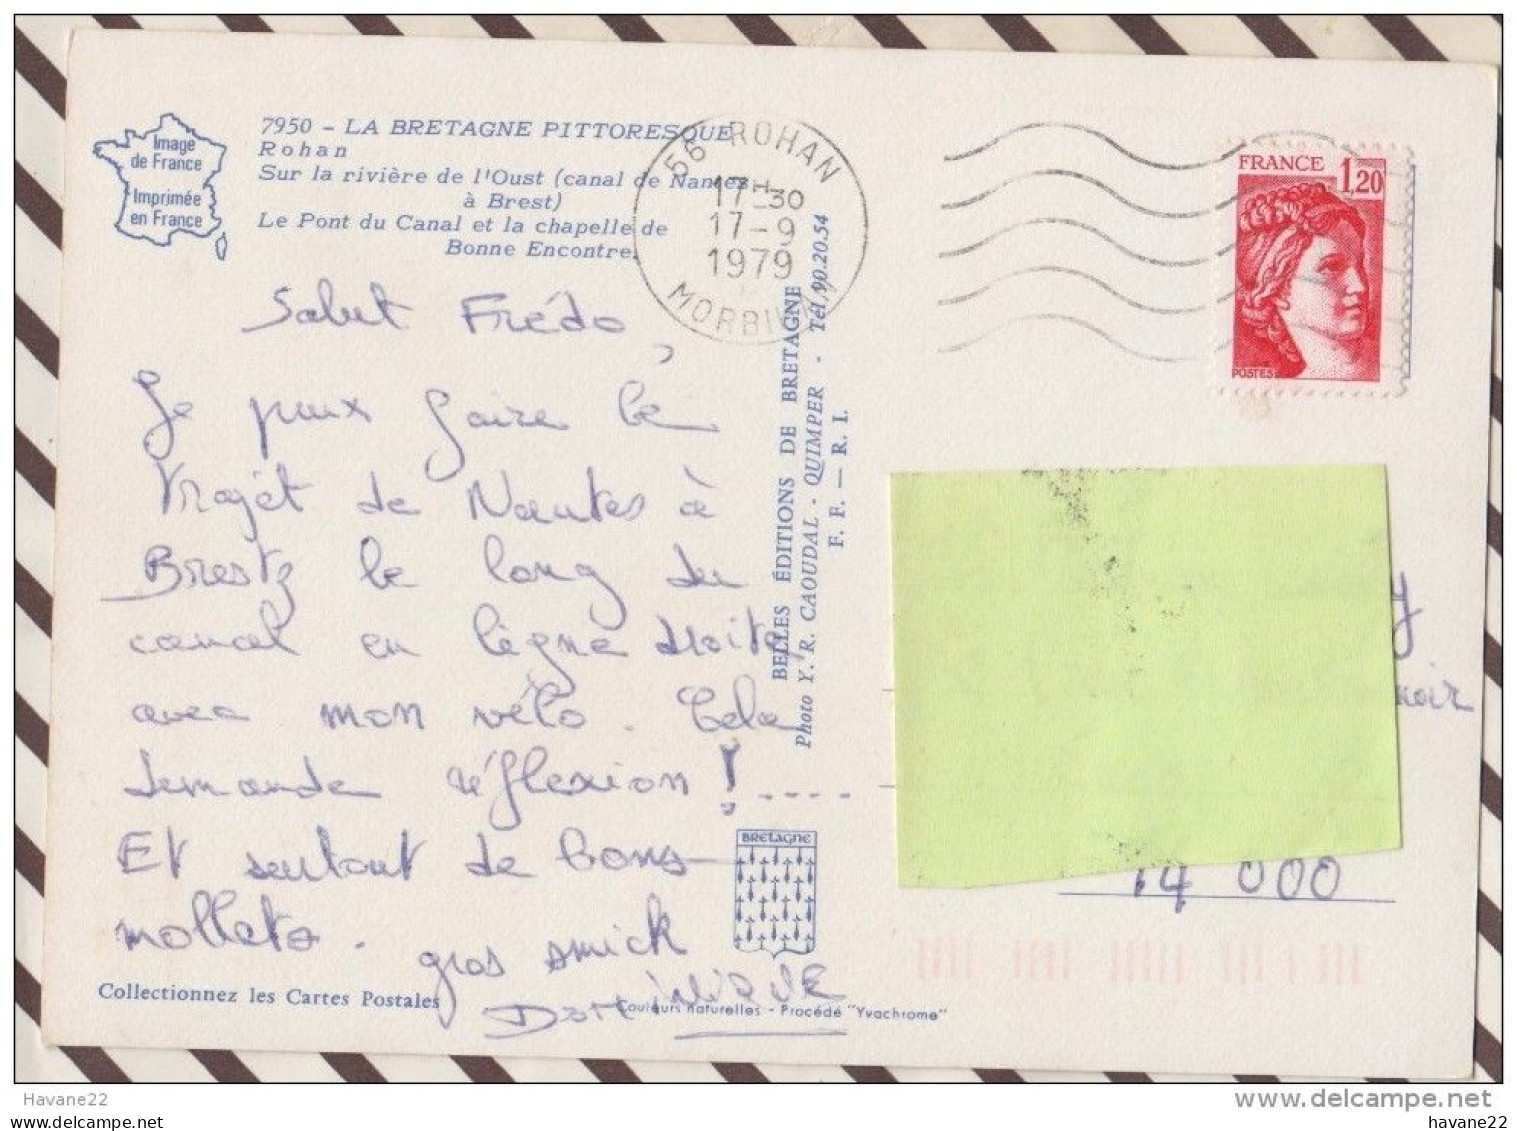 Image
de France
Imprimée
en France
7950 - LA BRETAGNE PITTORESQUE
Rohan
Sur la rivière de l'Oust (canal de Nantes
à Brest)
Le Pont du Canal et la chapelle de
Bonne Encontre.
56 ROHAN
17H30
17-9
1979
MORBIHAN
FRANCE
1,20
POSTES
Salut Frédo,
Je peux faire le
trajet de Nantes à
Brest le long du
canal en ligne droite
avec mon vélo. Cela
demande réflexion !....
Et surtout de bons
mollets. gros smick
Dominique
BELLES ÉDITIONS DE BRETAGNE
Photo Y. R. CAOUDAL - QUIMPER - Tél. 90.20.54
F. F. — R. I.
BRETAGNE
14 000
Collectionnez les Cartes Postales
Couleurs naturelles - Procédé "Yvachrome"
Havane22
havane22
www.delcampe.net
havane22